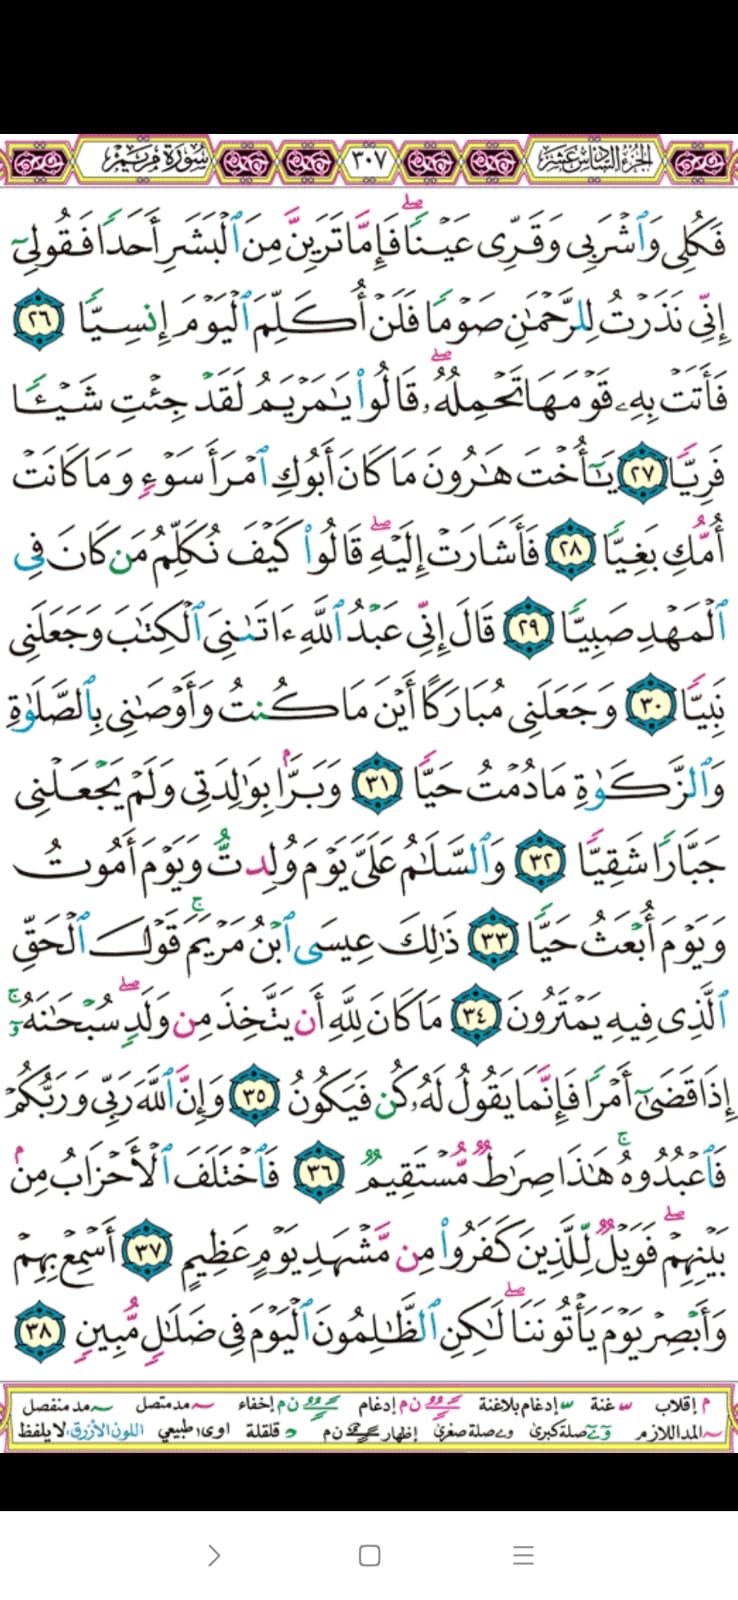 الجزء السادس عشر ٣٠٧ سورة مريم
فَكُلِى وَٱشْرَبِى وَقَرِّى عَيْنًاۖ فَإِمَّا تَرَيِنَّ مِنَ ٱلْبَشَرِ أَحَدًا فَقُولِىٓ
إِنِّى نَذَرْتُ لِلرَّحْمَٰنِ صَوْمًا فَلَنْ أُكَلِّمَ ٱلْيَوْمَ إِنسِيًّا ٢٦
فَأَتَتْ بِهِۦ قَوْمَهَا تَحْمِلُهُۥۖ قَالُوا۟ يَٰمَرْيَمُ لَقَدْ جِئْتِ شَيْـًٔا
فَرِيًّا ٢٧ يَٰٓأُخْتَ هَٰرُونَ مَا كَانَ أَبُوكِ ٱمْرَأَ سَوْءٍ وَمَا كَانَتْ
أُمُّكِ بَغِيًّا ٢٨ فَأَشَارَتْ إِلَيْهِۖ قَالُوا۟ كَيْفَ نُكَلِّمُ مَن كَانَ فِى
ٱلْمَهْدِ صَبِيًّا ٢٩ قَالَ إِنِّى عَبْدُ ٱللَّهِ ءَاتَىٰنِىَ ٱلْكِتَٰبَ وَجَعَلَنِى
نَبِيًّا ٣٠ وَجَعَلَنِى مُبَارَكًا أَيْنَ مَا كُنتُ وَأَوْصَٰنِى بِٱلصَّلَوٰةِ
وَٱلزَّكَوٰةِ مَا دُمْتُ حَيًّا ٣١ وَبَرًّۢا بِوَٰلِدَتِى وَلَمْ يَجْعَلْنِى
جَبَّارًا شَقِيًّا ٣٢ وَٱلسَّلَٰمُ عَلَىَّ يَوْمَ وُلِدتُّ وَيَوْمَ أَمُوتُ
وَيَوْمَ أُبْعَثُ حَيًّا ٣٣ ذَٰلِكَ عِيسَى ٱبْنُ مَرْيَمَۚ قَوْلَ ٱلْحَقِّ
ٱلَّذِى فِيهِ يَمْتَرُونَ ٣٤ مَا كَانَ لِلَّهِ أَن يَتَّخِذَ مِن وَلَدٍۖ سُبْحَٰنَهُۥٓۚ
إِذَا قَضَىٰٓ أَمْرًا فَإِنَّمَا يَقُولُ لَهُۥ كُن فَيَكُونُ ٣٥ وَإِنَّ ٱللَّهَ رَبِّى وَرَبُّكُمْ
فَٱعْبُدُوهُۚ هَٰذَا صِرَٰطٌ مُّسْتَقِيمٌ ٣٦ فَٱخْتَلَفَ ٱلْأَحْزَابُ مِنۢ
بَيْنِهِمْۖ فَوَيْلٌ لِّلَّذِينَ كَفَرُوا۟ مِن مَّشْهَدِ يَوْمٍ عَظِيمٍ ٣٧ أَسْمِعْ بِهِمْ
وَأَبْصِرْ يَوْمَ يَأْتُونَنَاۖ لَٰكِنِ ٱلظَّٰلِمُونَ ٱلْيَوْمَ فِى ضَلَٰلٍ مُّبِينٍ ٣٨
م إقلاب غنة إدغام بلاغنة ن م إدغام ن م إخفاء مد متصل مد منفصل
المد اللازم صلة كبرىٰ صلة صغرىٰ إظهار ن م قلقلة اوى طبيعي اللون الأزرق، لا يلفظ